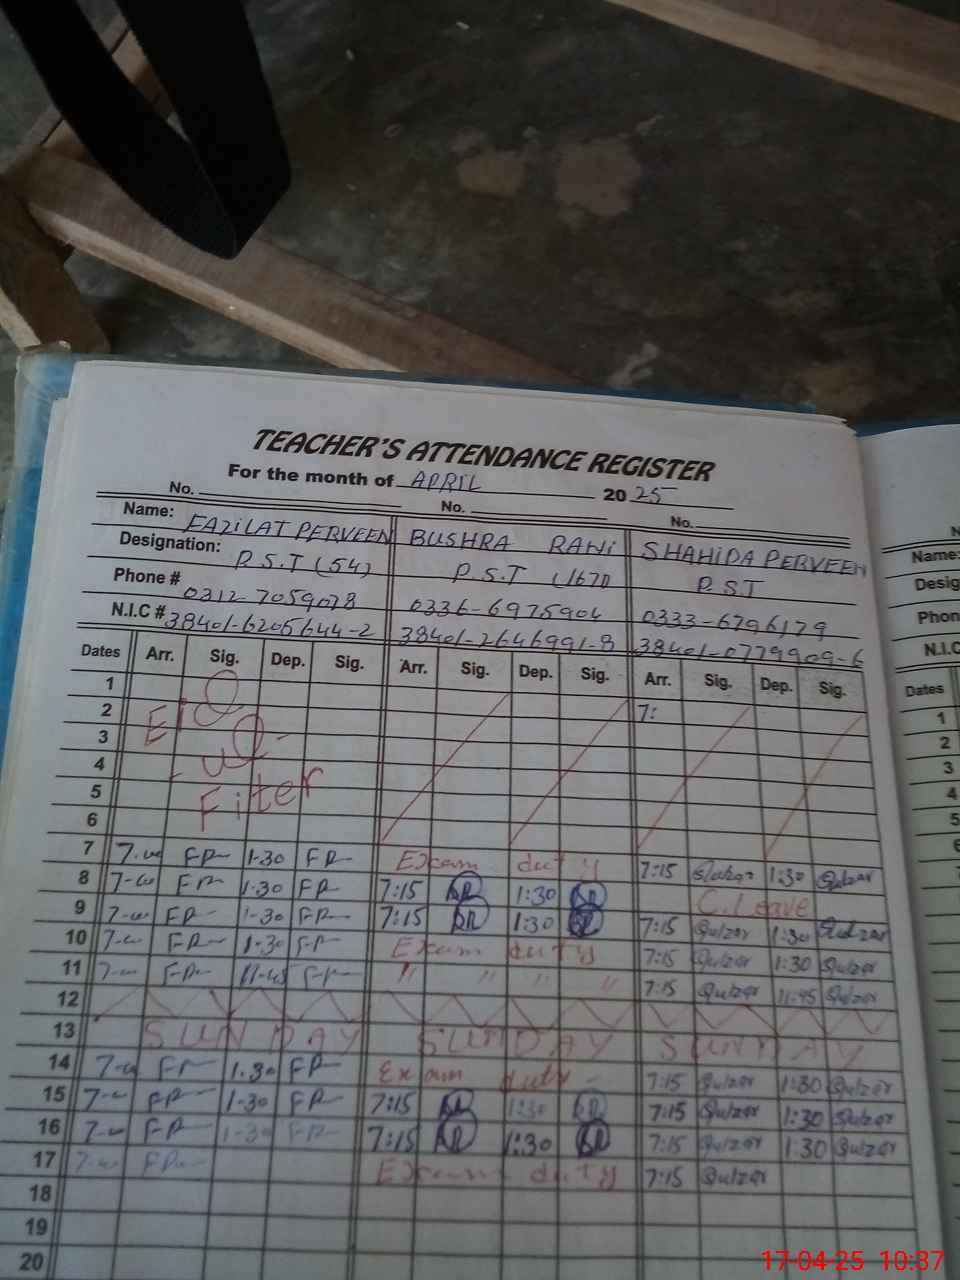 TEACHER'S ATTENDANCE REGISTER
For the month of APRIL 2025
No. No. No.
Name: FAZILAT PERVEEN BUSHRA RANI SHAHIDA PERVEEN
Designation: P.S.T (54) P.S.T P.S.T
Phone # 0312-7059078 0336-6975904 0333-6796179
N.I.C # 38401-6205644-2 38401-2646991-8 38401-0779909-6
Dates Arr. Sig. Dep. Sig. Arr. Sig. Dep. Sig. Arr. Sig. Dep. Sig.
1
2 7:
3
4
5 Fiter
6
7 FP 1-30 FP Exam duty 7:15 Gulzar 1:30 Gulzar
8 FP 1-30 FP 7:15 BR 1:30 BR C. Leave
9 FP 1-30 FP 7:15 BR 1:30 BR 7:15 Gulzar 1:30 Gulzar
10 FP 1-30 FP Exam duty 7:15 Gulzar 1:30 Gulzar
11 FP 11-45 FP " " " " 7:15 Gulzar 11:45 Gulzar
12
13 SUNDAY SUNDAY SUNDAY
14 FP 1.30 FP Exam duty - 7:15 Gulzar 1:30 Gulzar
15 FP 1-30 FP 7:15 BR 1:30 BR 7:15 Gulzar 1:30 Gulzar
16 FP 1-30 FP 7:15 BR 1:30 BR 7:15 Gulzar 1:30 Gulzar
17 FP Exam duty 7:15 Gulzar
18
19
20
Name:
Desig
Phon
N.I.C
Dates
1
2
3
4
5
6
17-04-25 10:37